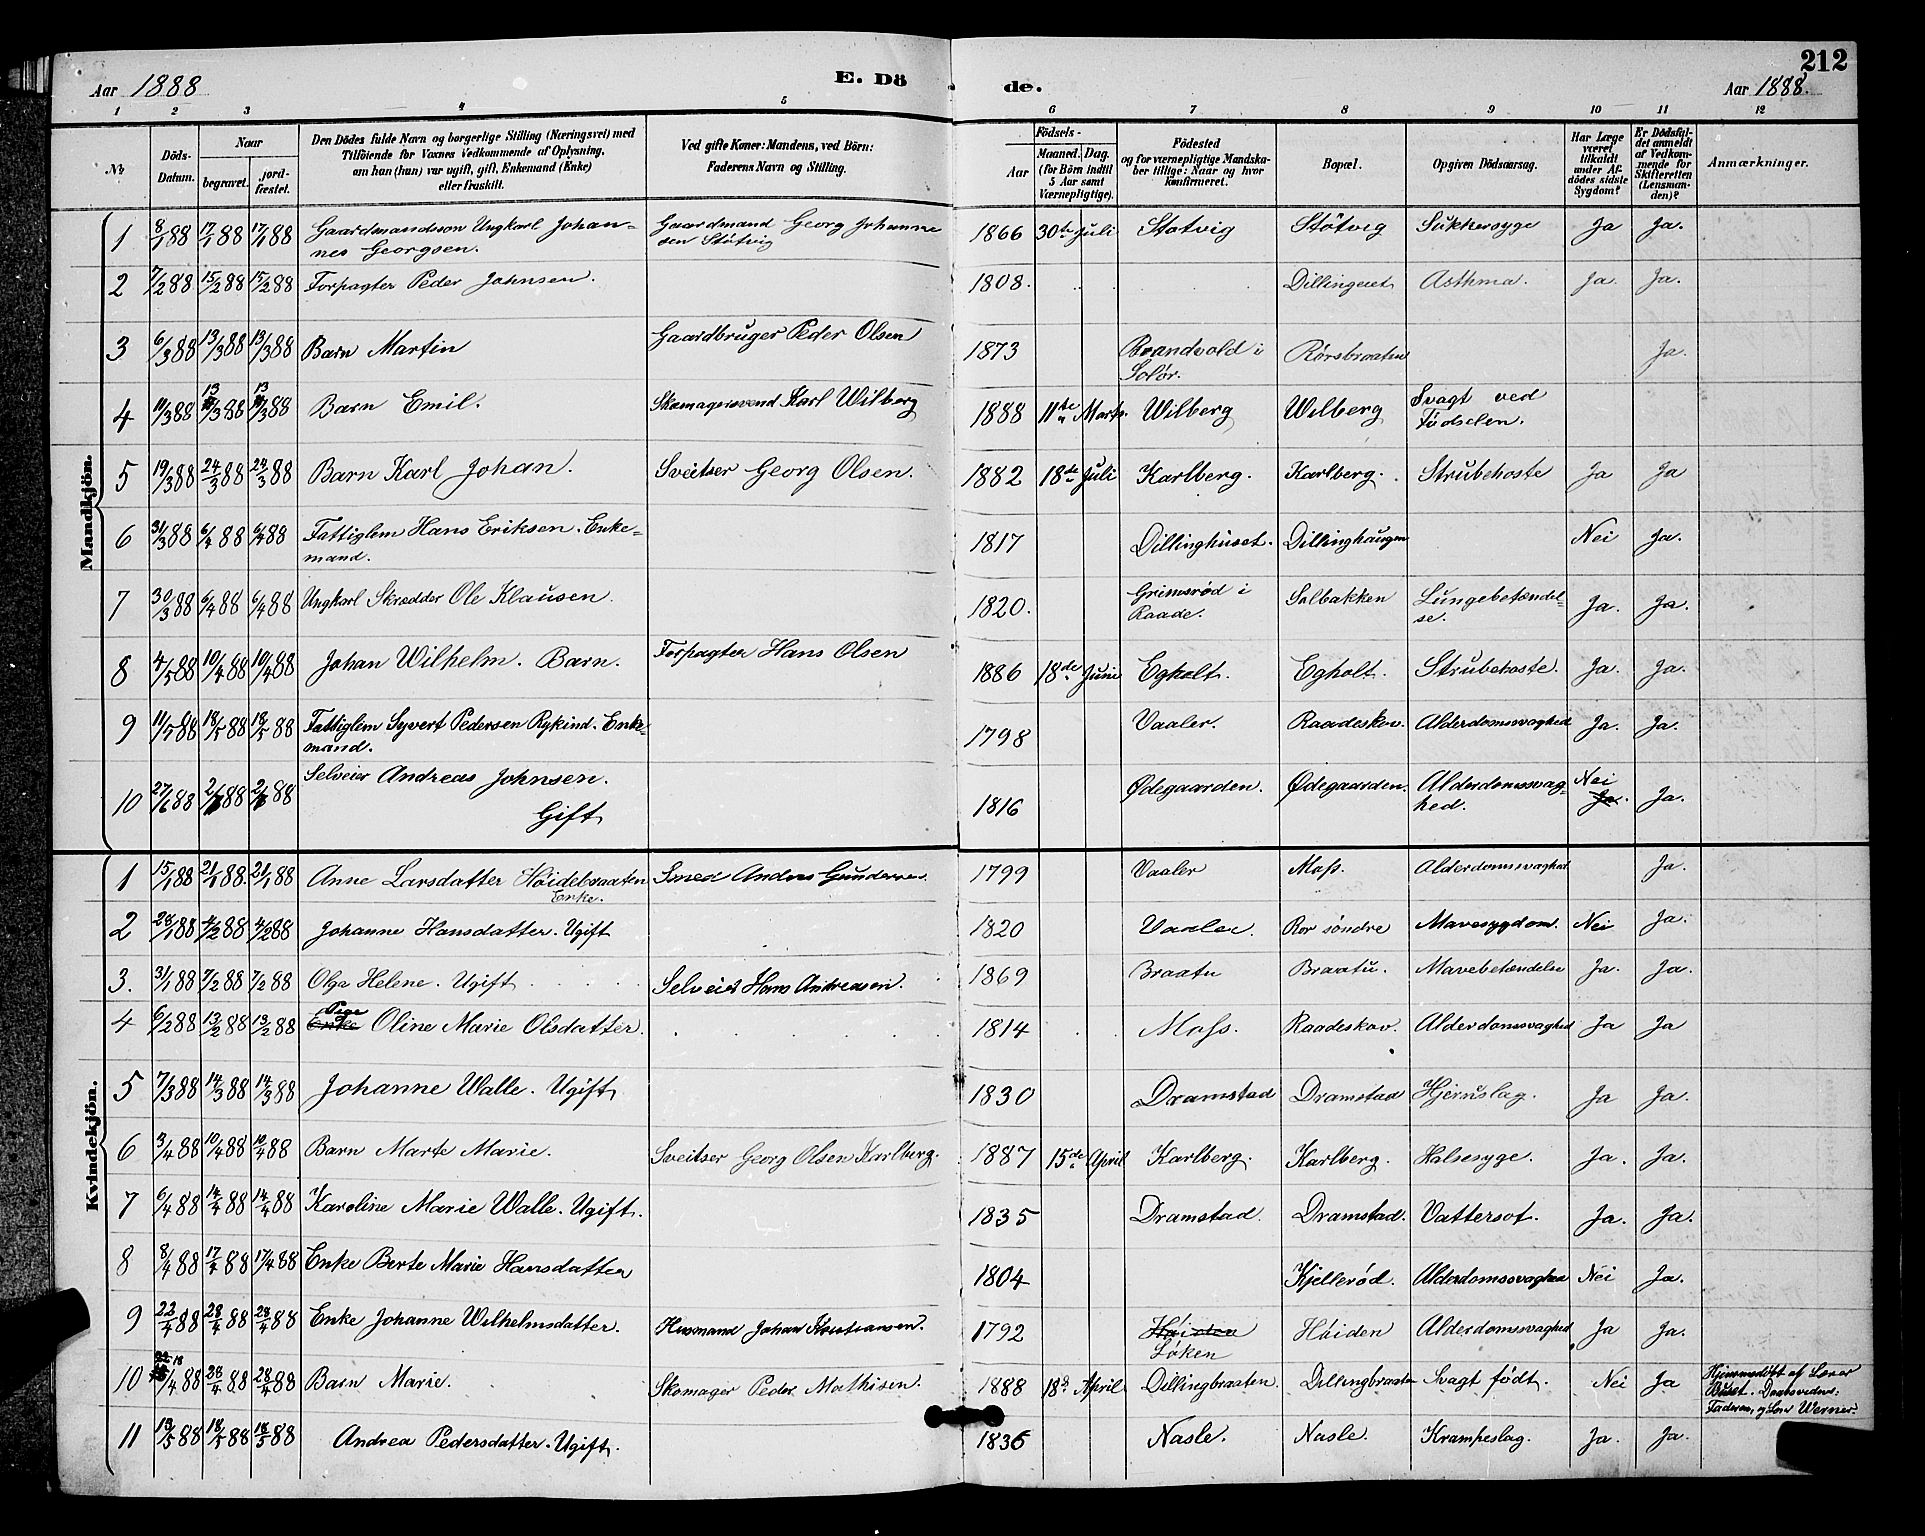 212
Aar 1888
E. Dö de.
Aar 1888.
1 2 3 4 5 6 7 8 9 10 11 12
No
Döds-Datum.
Naar
begravet.
jord-fæstet.
Den Dödes fulde Navn og borgerlige Stilling (Næringsvei) med
Tilföiende for Voxnes Vedkommende af Oplysning,
om han (hun) var ugift, gift, Enkemand (Enke)
eller fraskilt.
Ved gifte Koner: Mandens, ved Börn:
Faderens Navn og Stilling.
Födsels-
Aar
Maaned. Dag.
(for Börn indtil
5 Aar samt
Værnepligtige).
Födested
og for værnepligtige Mandska-
ber tillige: Naar og hvor
konfirmeret.
Bopæl.
Opgiven Dödsaarsag.
Har Læge
været
tilkaldt
under Af-
dödes sidste
Sygdom?
Er Dödsfal-
det anmeldt
af Vedkom-
mende for
Skifteretten
(Lensman-
den)?
Anmærkninger.
Mandkjön.
1 8/1 88 17/1 88 17/1 88 Gaardmandssön Ungkarl Johan-
nes Georgsen. Gaardmand Georg Johanne
sen Støtvig 1866 30te Juli Støtvig Støtvig Sukkersyge Ja Ja.
2 7/2 88 15/2 88 15/2 88 Forpagter Peder Johnsen. 1808. Dillingeret Asthma. Ja. Ja.
3 6/3 88 13/3 88 13/3 88 Barn Martin Gaardbruger Peder Olsen 1873 Brandvold i
Solør. Rørsbraaten Ja.
4 11/3 88 13/3 88 13/3 88 Barn Emil. Skomagersvend Karl Wilberg 1888 11te Marts. Wilberg Wilberg Svagt ved
Fødselen.
5 19/3 88 24/3 88 24/3 88 Barn Karl Johan. Sveitser Georg Olsen. 1882 18de Juli Karlberg. Karlberg. Strubehoste Ja Ja
6 31/3 88 6/4 88 6/4 88 Fattiglem Hans Eriksen. Enke-
mand. 1817 Dillinghuset. Dillinghaugen Nei Ja.
7 30/3 88 6/4 88 6/4 88 Ungkarl Skrædder Ole Klausen. 1820. Grimsrød i
Raade. Solbakken Lungebetændel-
se. Ja. Ja.
8 4/5 88 10/4 88 10/4 88 Johan Wilhelm. Barn. Forpagter Hans Olsen 1886 18de Juni Egholt. Egholt. Strubehoste. Ja. Ja.
9 11/5 88 18/5 88 18/5 88 Fattiglem Syvert Pedersen Rykind. Enke-
mand. 1798 Vaaler. Raadeskov. Alderdomssvaghed Ja. Ja.
10 27/6 88 2/7 88 2/7 88 Selveier Andreas Johnsen.
Gift 1816 Ødegaarden. Ødegaarden. Alderdomssvag-
hed. Nei
Ja. Ja.
Kvindekjön.
1 15/1 88 21/1 88. 21/1 88 Anne Larsdatter Høidebraaten
Enke. Smed Anders Gundersen. 1799 Vaaler Moss. Alderdomssvaghed Ja.
2 28/1 88 4/2 88 4/2 88 Johanne Hansdatter. Ugift 1820 Vaaler. Ror søndre Mavesygdom. Nei Ja.
3. 31/1 88 7/2 88 7/2 88 Olga Helene. Ugift Selveier Hans Andreasen. 1869 Braatu Braatu. Mavebetændelse Ja. Ja.
4 6/2 88 13/2 88 13/2 88 Pige
Enke Oline Marie Olsdatter. 1814 Moss. Raadeskov. Alderdomssvaghed Ja Ja
5 7/3 88 14/3 88 14/3 88 Johanne Walle. Ugift 1830 Dramstad Dramstad Hjernslag. Ja Ja.
6 3/4 88 10/4 88 10/4 88 Barn Marte Marie. Sveitser Georg Olsen Karlberg. 1887 15de April Karlberg. Karlberg. Halsesyge. Ja. Ja.
7 6/4 88 14/4 88 14/4 88 Karoline Marie Walle. Ugift. 1835 Dramstad. Dramstad. Vattersot. Ja. Ja.
8 8/4 88 17/4 88 17/4 88 Enke Berte Marie Hansdatter 1804 Kjellerød. Alderdomssvaghed Nei Ja.
9 22/4 88 28/4 88 28/4 88 Enke Johanne Wilhelmsdatter. Husmand Johan Kristiansen. 1792 Høiden
Løken Høiden Alderdomssvaghed Ja Ja.
10 18/4 88 28/4 88 28/4 88 Barn Marie. Skomager Peder Mathisen. 1888 18de April Dillingbraaten. Dillingbraaten Svagt født. Nei Ja Hjemmedøbt af Lærer
Buset. Daabsvidner:
Faderen, og Werner.
11 13/5 88 18/5 88 18/5 88 Andrea Pedersdatter. Ugift. 1836 Nasle. Nasle. Krampeslag. Ja. Ja.